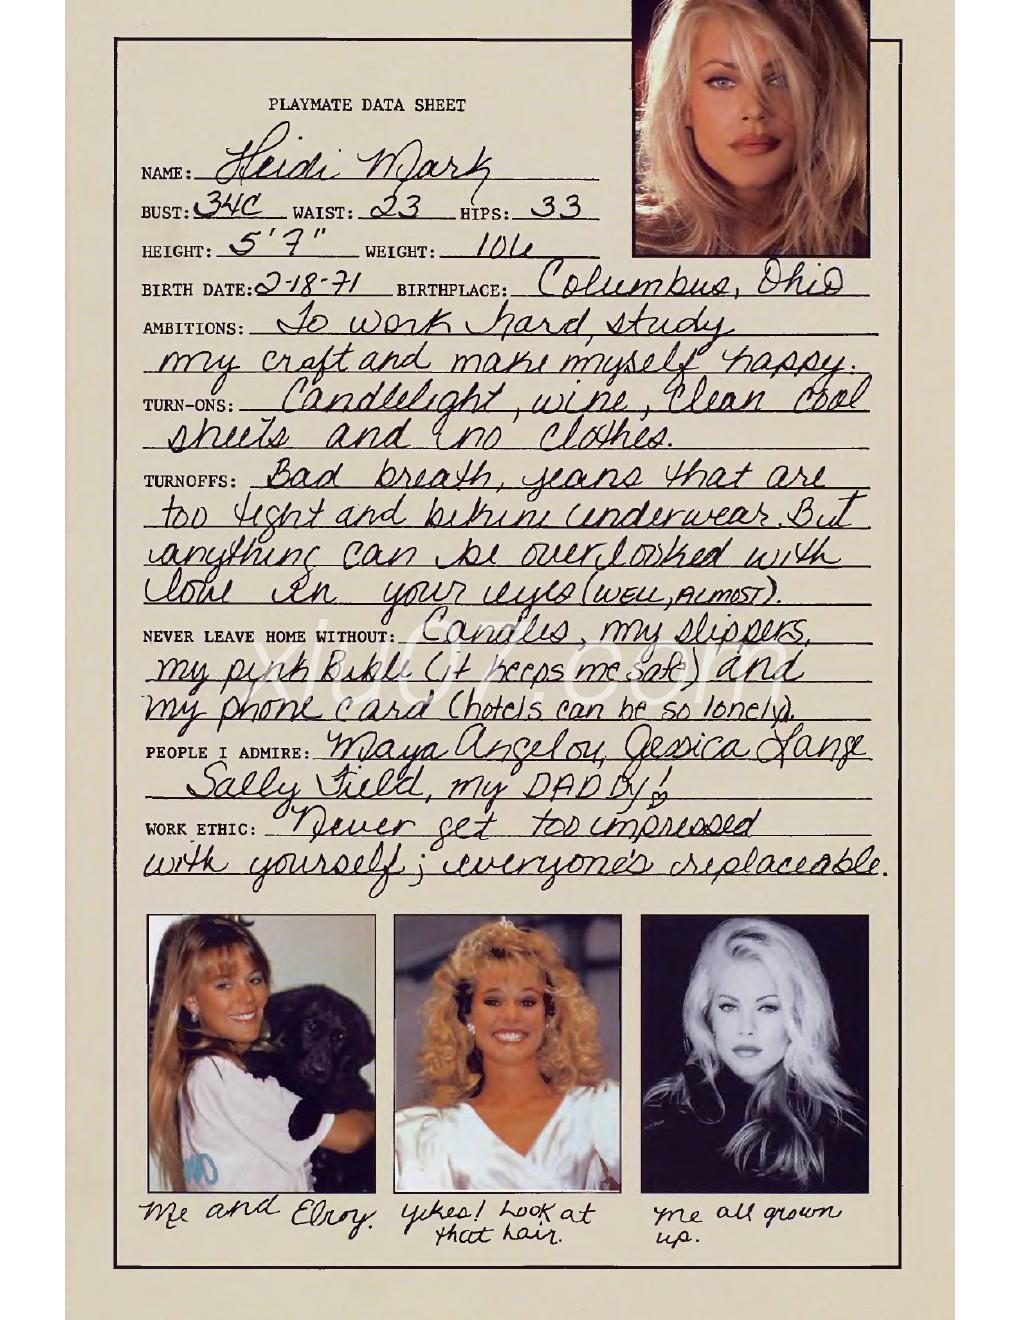 PLAYMATE DATA SHEET
NAME: Heidi Mark
BUST: 34C WAIST: 23 HIPS: 33
HEIGHT: 5'7" WEIGHT: 106
BIRTH DATE: 2-18-71 BIRTHPLACE: Columbus, Ohio
AMBITIONS: To work hard, study
my craft and make myself happy.
TURN-ONS: Candlelight, wine, clean cool
sheets and no clothes.
TURNOFFS: Bad breath, jeans that are
too tight and bikini underwear. But
anything can be overlooked with
love in your eyes (WELL, ALMOST).
NEVER LEAVE HOME WITHOUT: Candles, my slippers,
my pink Bible (it keeps me safe) and
my phone card (hotels can be so lonely).
PEOPLE I ADMIRE: Maya Angelou, Jessica Lange
Sally Field, my DADDY!
WORK ETHIC: Never get too impressed
with yourself; everyone's replaceable.
xiu07.com
Me and Elroy.
Yikes! Look at
that hair.
Me all grown
up.